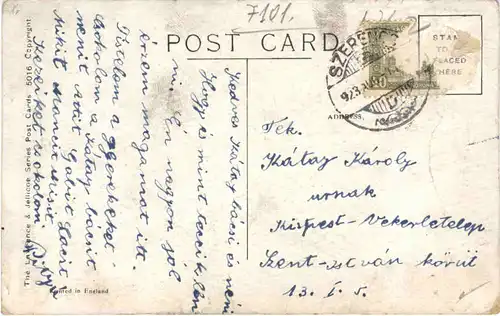 7101.
POST CARD
STAMP
TO
PLACED
HERE
SZERENCS
ADDRESS.
Kedves Kátay bácsi és néni
Hogy és mint teccik len
ni. Én nagyon jól
érzem magamat itt.
Tisztelem a gyerekeket.
Csókolom a Kátay bácsit
nénit Ádit Gabit Lacit
Mikit Mancit Misit.
Szeretket csókolom.
Tek.
Kátay Károly
urnak
Kispest-Wekerletelep
Szent-István körút
13. I. 5.
The Lawrence & Jellicoe Series Post Cards. 5016 Copyright
Printed in England